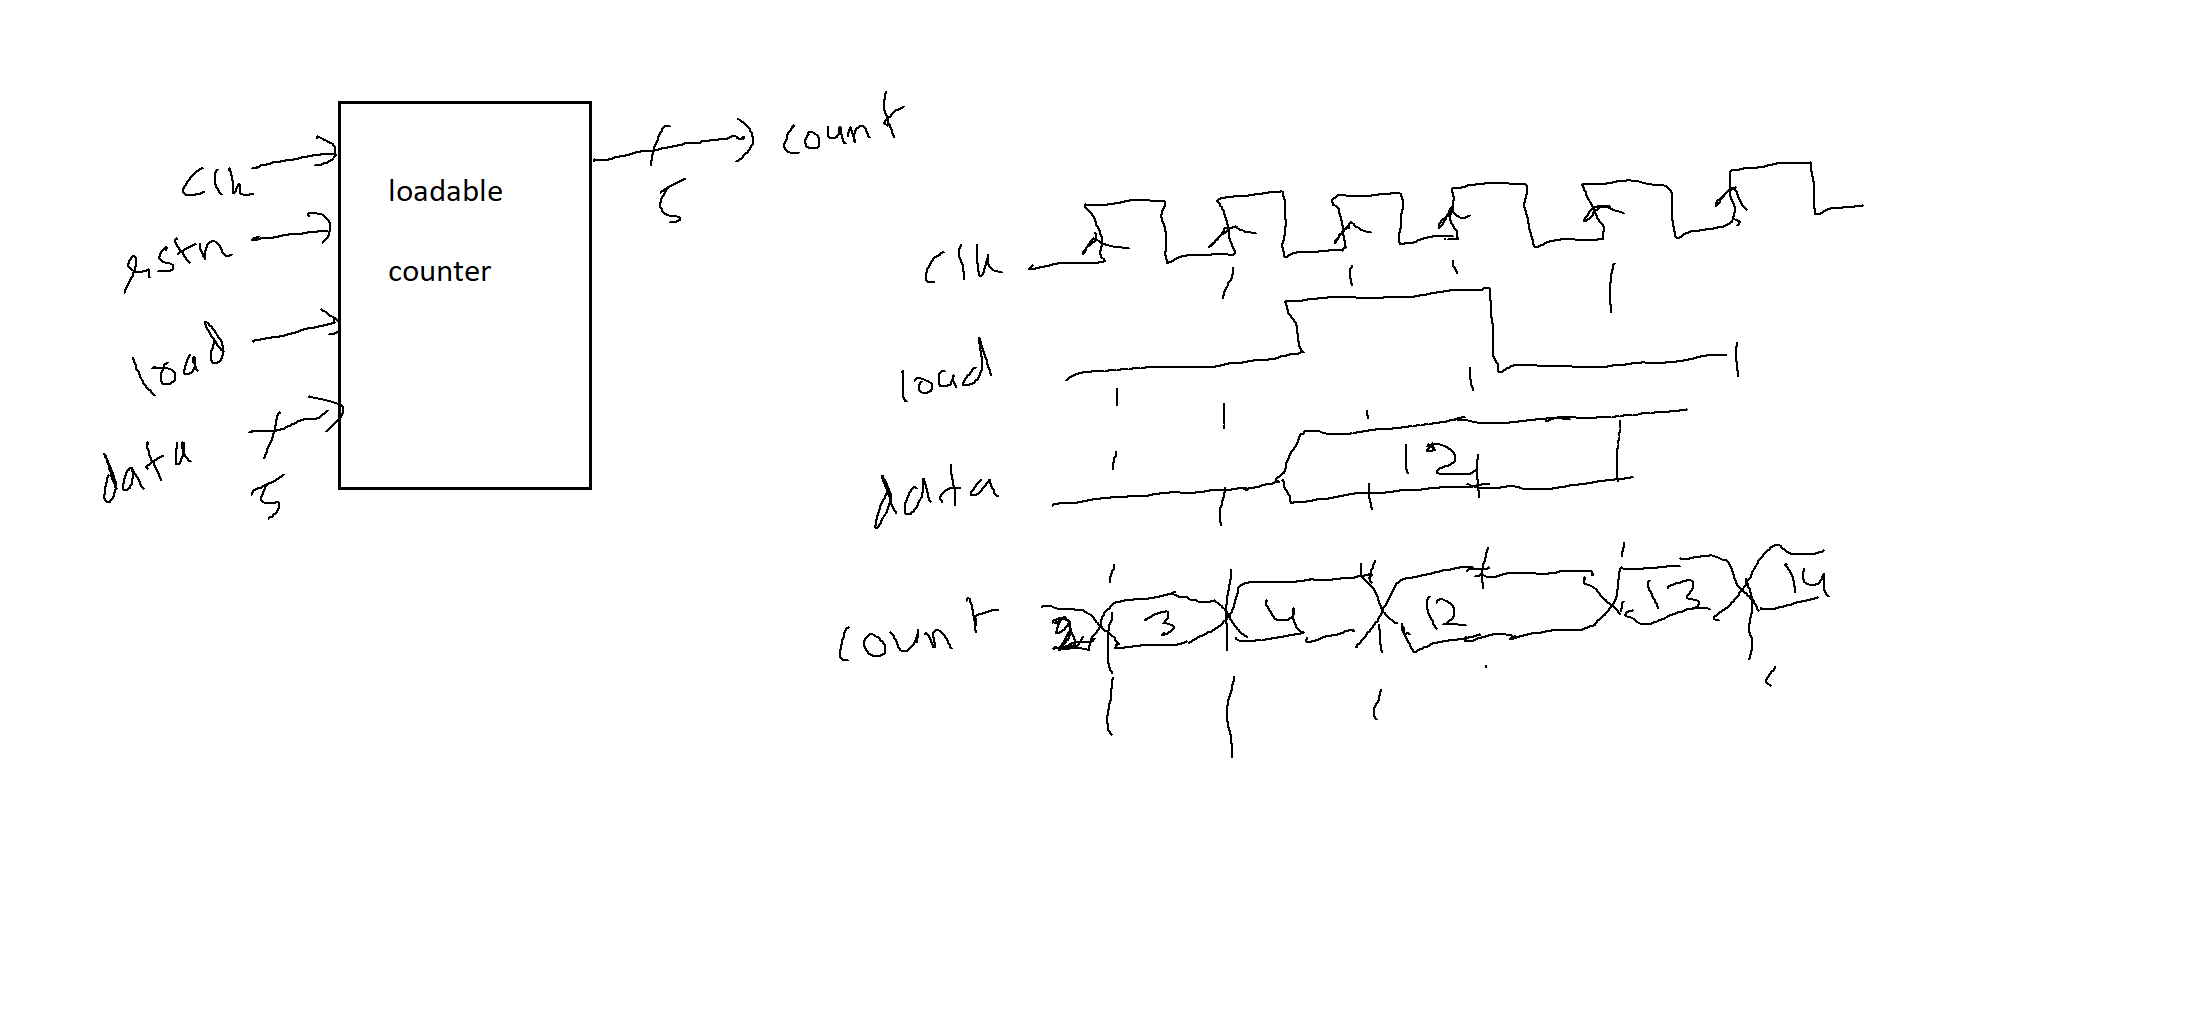 clk
rstn
load
data
5
loadable
counter
5
count
clk
load
data
12
count
2
3
4
12
13
14